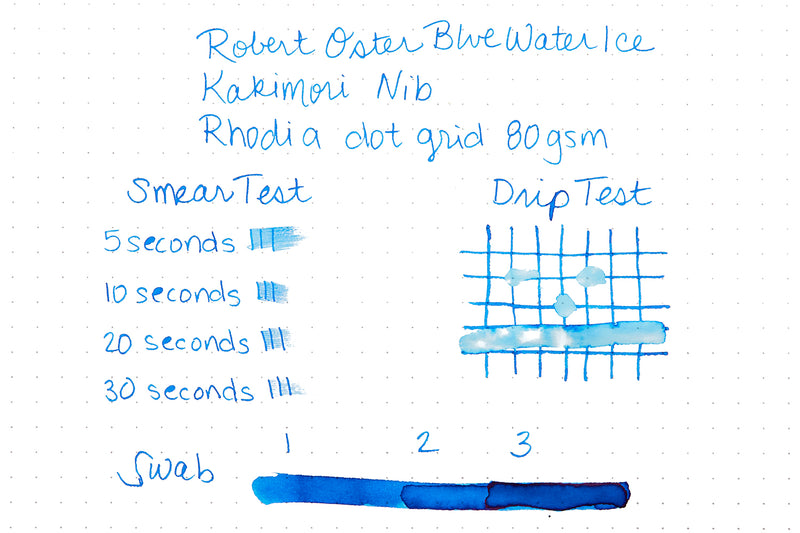 Robert Oster Blue Water Ice
Kakimori Nib
Rhodia dot grid 80gsm
Smear Test
5 seconds
10 seconds
20 seconds
30 seconds
Drip Test
1 2 3
Swab